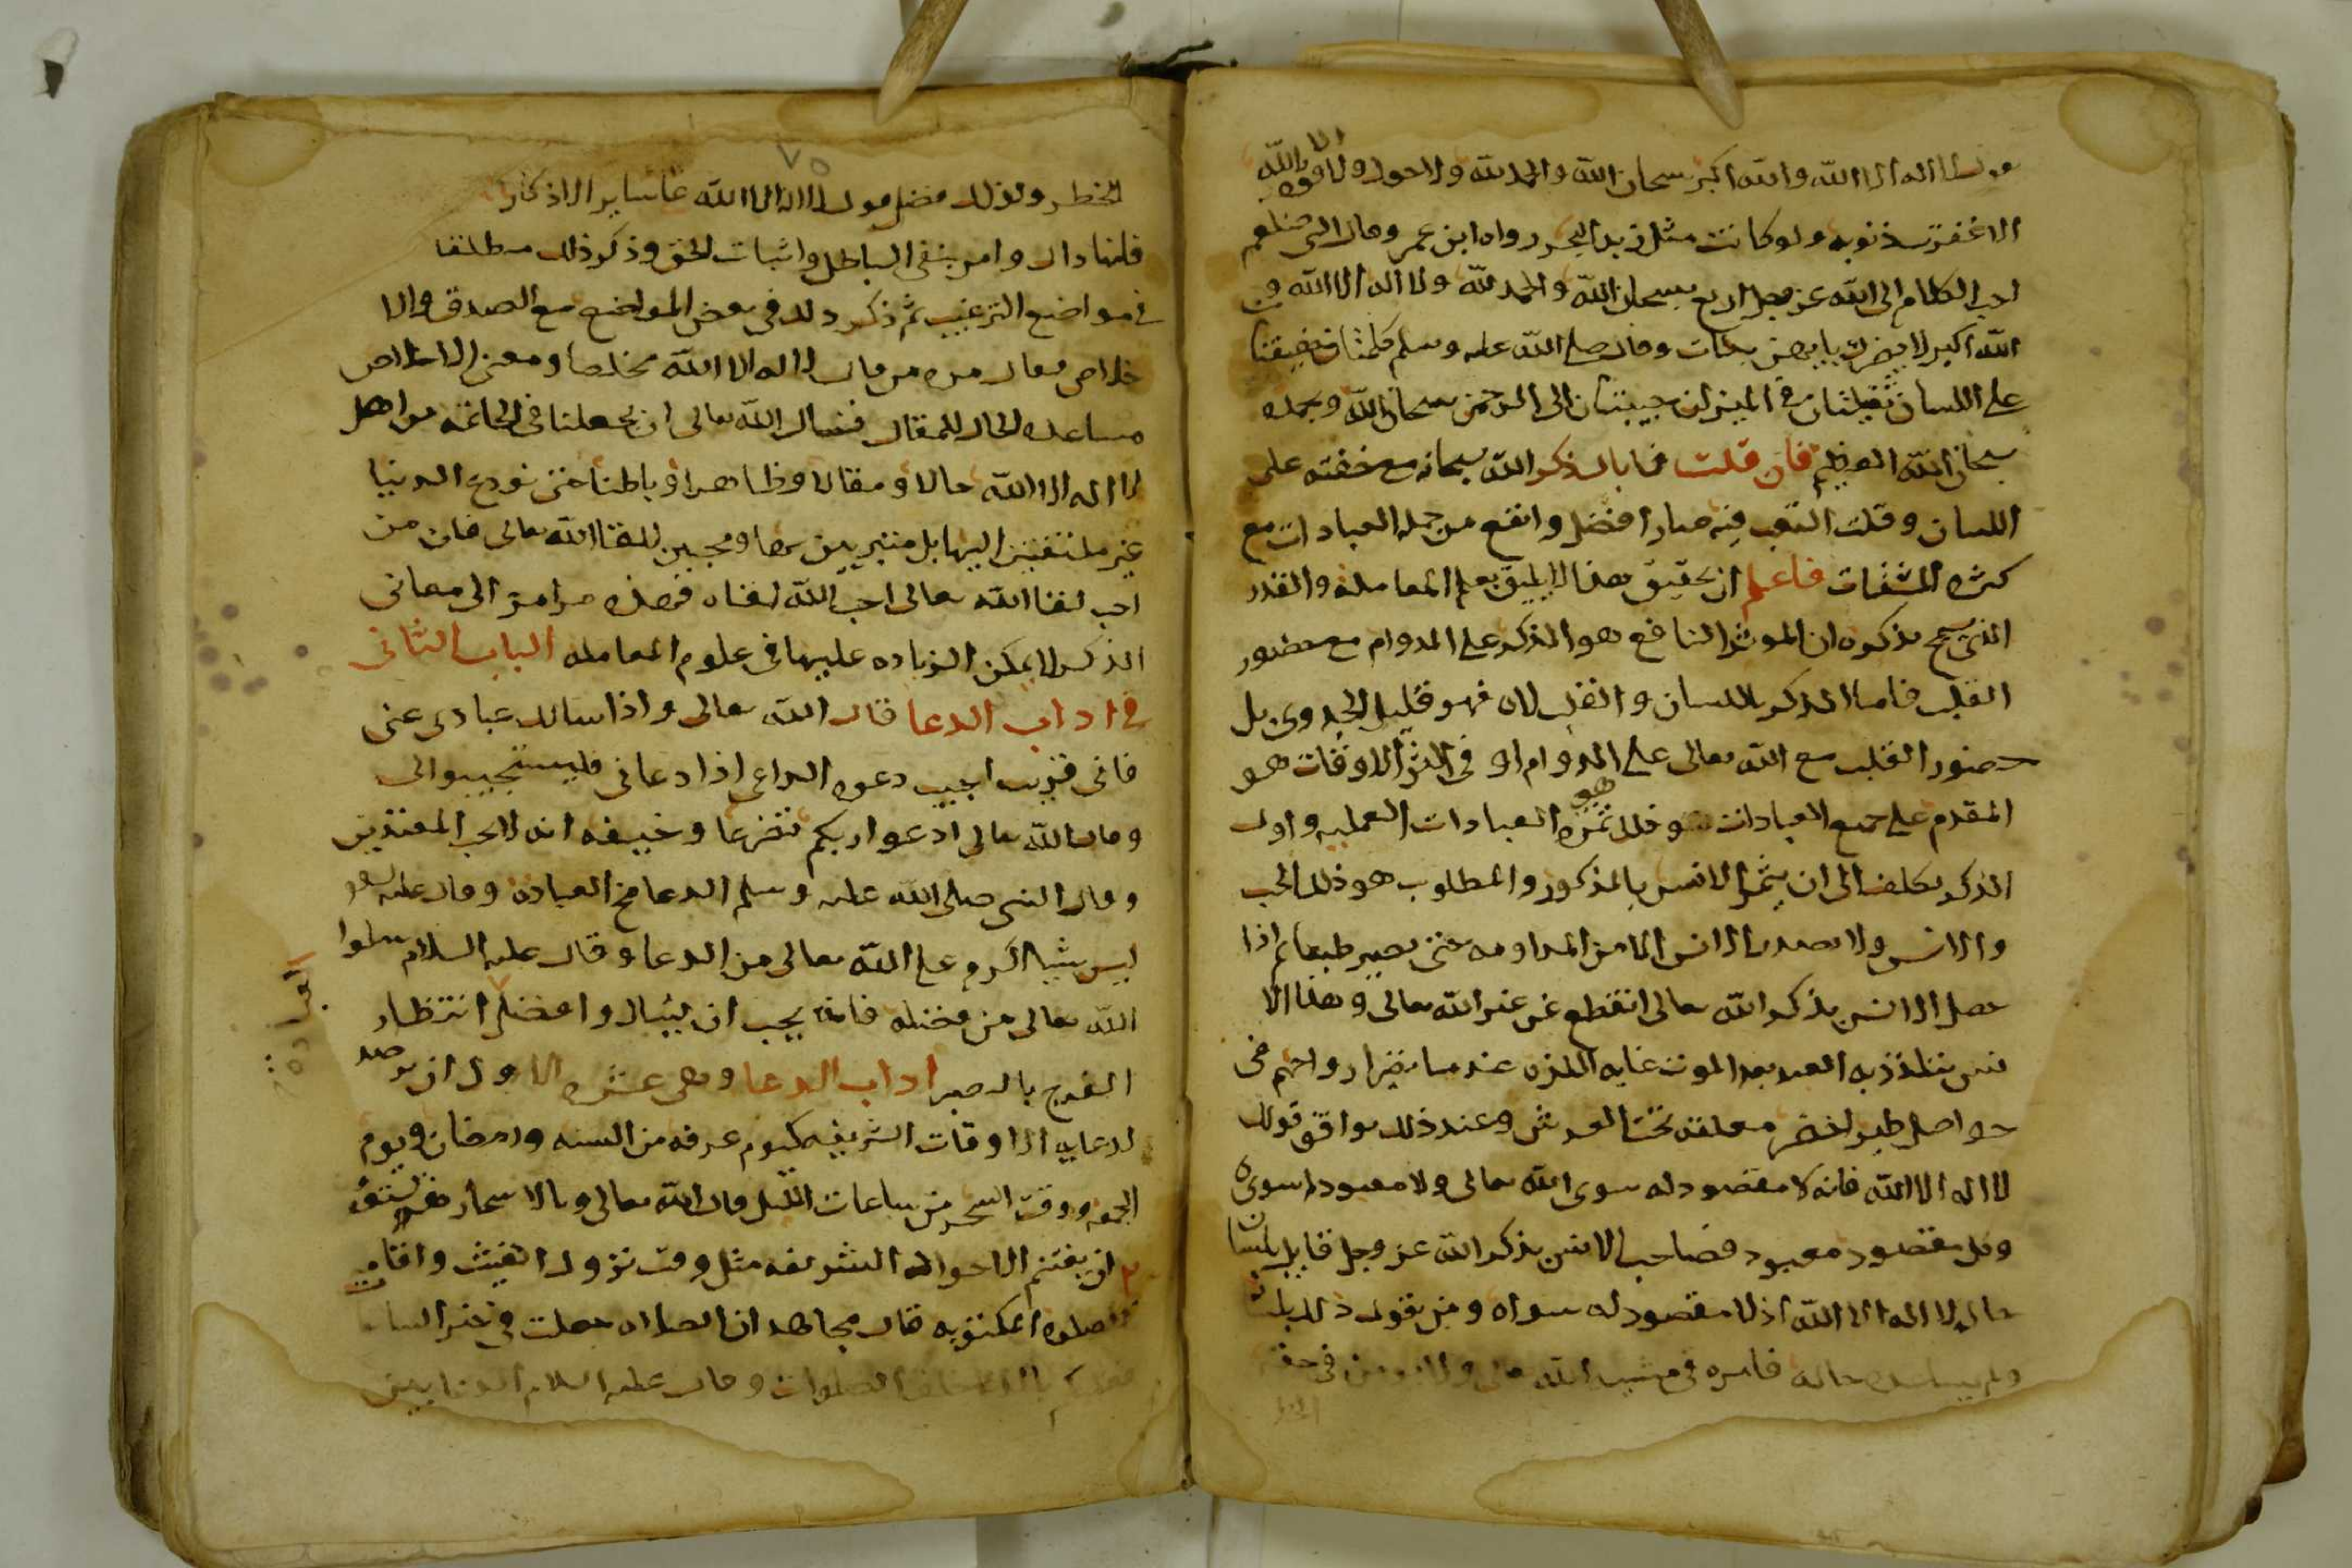 يقول لا اله الا الله والله اكبر سبحان الله والحمد لله ولا حول ولا قوه الا بالله
الا غفرت ذنوبه ولو كانت مثل زبد البحر رواه ابن عمر وقال النبى صلعم
احب الكلام الى الله عز وجل اربع سبحان الله والحمد لله ولا اله الا الله و
الله اكبر لا يضرك بايهن بدات وقال صلى الله عليه وسلم كلمتان خفيفتان
على اللسان ثقيلتان فى الميزان حبيبتان الى الرحمن سبحان الله وبحمده
سبحان الله العظيم فان قلت فما بال ذكر الله سبحانه مع خفته على
اللسان وقلت التعب فيه صار افضل وانفع من جمله العبادات مع
كثره المشقات فاعلم ان تحقيق هذا لا يليق بعلم المعامله والقدر
الذى يسمح بذكره ان الموثر النافع هو الذكر على الدوام مع حضور
القلب فاما الذكر باللسان والقلب لاه فهو قليل الجدوى بل
حضور القلب مع الله تعالى على الدوام او فى اكثر الاوقات هو
المقدم على جميع العبادات هو ثمره العبادات العمليه واول
الذكر تكلف الى ان يثمر الانس بالمذكور والمطلوب هو ذلك الحب
والانس ولا يصدر الانس الا من المداومه حتى يصير طبعا ثم اذا
حصل الانس بذكر الله تعالى انقطع عن غير الله تعالى وهذا الا
نس يتلذذ به العبد بعد الموت غايه اللذه عند ما تقر ارواحهم فى
حواصل طير خضر معلقه تحت العرش وعند ذلك يوافق قولك
لا اله الا الله فانه لا مقصود له سوى الله تعالى ولا معبود سوى
وكل مقصود معبود فصاحب الانس بذكر الله عز وجل قايل بلسان
حاله لا اله الا الله اذ لا مقصود له سواه ومن يقول ذلك بلسانه
ولم يساعده حاله فامره فى مشيه الله تعالى ولا يومن فى حقه
الخطر
٧٥
الخطر ولذلك فضل قول لا اله الا الله على ساير الاذكار
فانها دال وامر بنفى الباطل واثبات الحق وذكر ذلك مطلقا
فى مواضع الترغيب ثم ذكر ذلك فى بعض المواضع مع الصدق والا
خلاص فقال مره من قال لا اله الا الله مخلصا ومعنى الاخلاص
مساعده الحال للمقال فنسال الله تعالى ان يجعلنا فى الخاتمه من اهل
لا اله الا الله حالا ومقالا وظاهرا وباطنا حتى نودع الدنيا
غير ملتفتين اليها بل متبريين بها ومحبين للقا الله تعالى فان من
احب لقا الله تعالى احب الله لقاه فهذه مرامز الى معانى
الذكر لا يمكن الزياده عليها فى علوم المعامله الباب الثانى
فى اداب الدعا قال الله تعالى واذا سالك عبادى عنى
فانى قريب اجيب دعوه الداعى اذا دعانى فليستجيبوا لى
وقال الله تعالى ادعوا ربكم تضرعا وخيفه انه لا يحب المعتدين
وقال النبى صلى الله عليه وسلم الدعا مخ العباده وقال عليه السلام
ليس شيا اكرم على الله تعالى من الدعا وقال عليه السلام سلوا
الله تعالى من فضله فانه يحب ان يسال وافضل انتظار
العبادة
الفرج بالصبر اداب الدعا وهى عشره الاول ان يترصد
لدعايه الاوقات الشريفه كيوم عرفه من السنه ورمضان ويوم
الجمعه ووقت السحر من ساعات الليل قال الله تعالى وبالاسحار هم يستغفرون
٢ ان يغتنم الاحوال الشريفه مثل وقت نزول الغيث واقامت
الصلوه المكتوبه قال مجاهد ان الصلاه جعلت فى خير الساعات
فعليكم بالدعا خلف الصلوات وقال عليه السلام الدعا بين